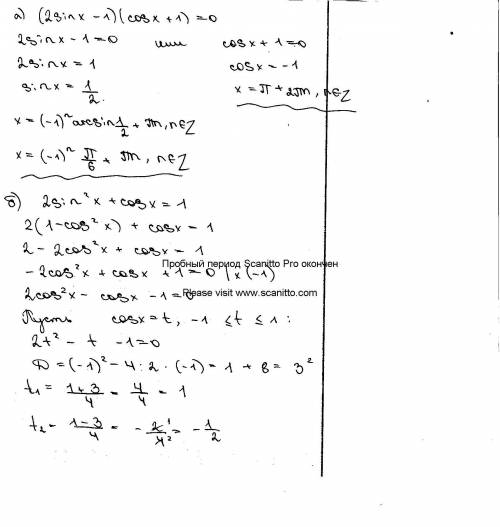 а) (2sinx - 1)(cosx + 1) = 0
2sinx - 1 = 0 или cosx + 1 = 0
2sinx = 1 cosx = -1
sinx = 1/2. x = π + 2πn, n∈Z
x = (-1)ⁿ arcsin 1/2 + πn, n∈Z
x = (-1)ⁿ π/6 + πn, n∈Z
б) 2sin²x + cosx = 1
2(1 - cos²x) + cosx = 1
2 - 2cos²x + cosx = 1
Пробный период Scanitto Pro окончен
-2cos²x + cosx + 1 = 0 | x (-1)
Please visit www.scanitto.com
2cos²x - cosx - 1 = 0
Пусть cosx = t, -1 ≤ t ≤ 1 :
2t² - t - 1 = 0
D = (-1)² - 4 · 2 · (-1) = 1 + 8 = 3²
t₁ = 1+3/4 = 4/4 = 1
t₂ = 1-3/4 = - 2¹/4² = - 1/2